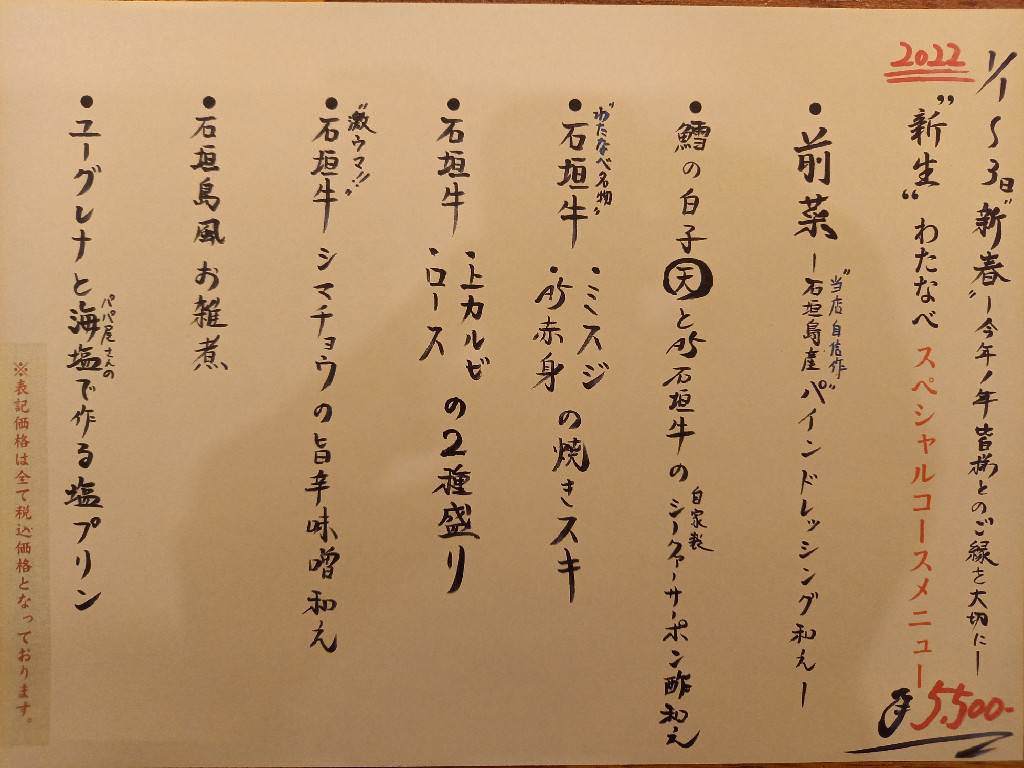 1/1〜3日"新春"ー今年1年皆様とのご縁を大切にー
2022
"新生"わたなべスペシャルコースメニュー
5,500-
・前菜ー石垣島産パインドレッシング和えー
"当店自信作"
・鱈の白子天と石垣牛のシークァーサーポン酢和え
自家製
"わたなべ名物"
・石垣牛
・ミスジ
赤身
の焼きスキ
・石垣牛
・上カルビ
・ロース
の2種盛り
"激ウマ!!"
・石垣牛シマチョウの旨辛味噌和え
・石垣島風お雑煮
・ユーグレナと海塩で作る塩プリン
パパ屋さんの
※表記価格は全て税込価格となっております。